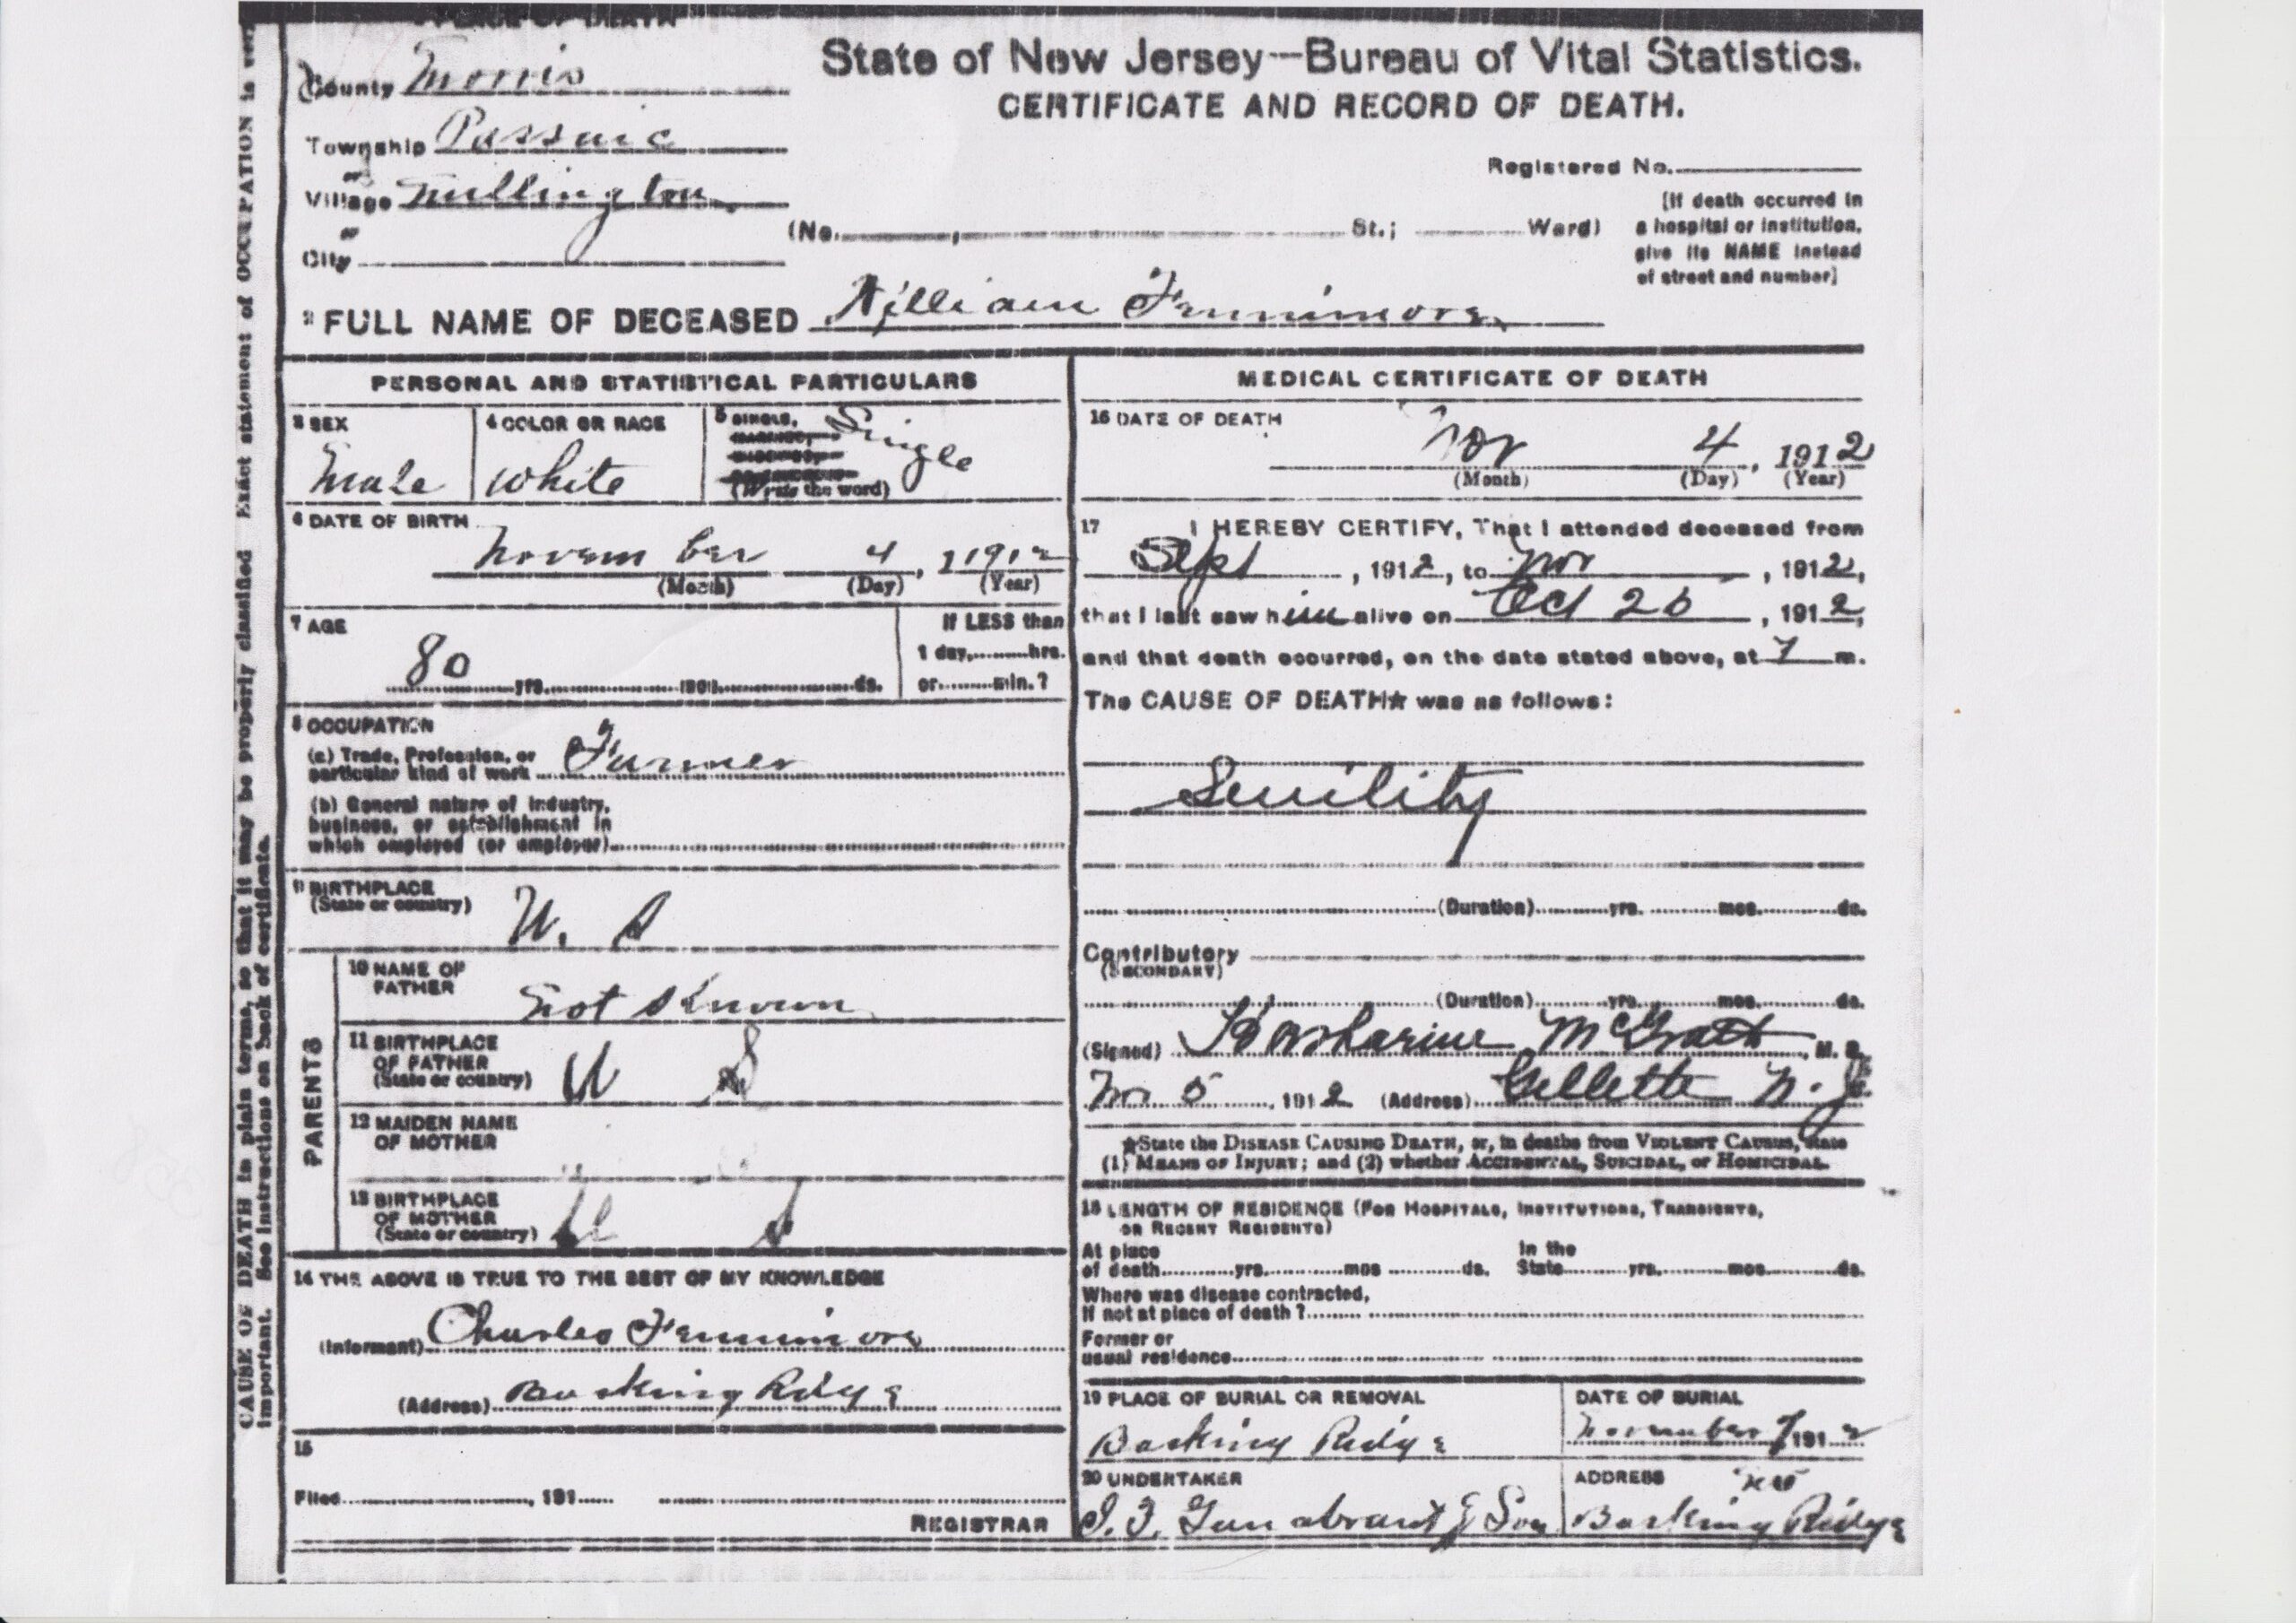 PLACE OF DEATH
County Morris
Township Passaic
or
Village Millington
or
City
State of New Jersey—Bureau of Vital Statistics.
CERTIFICATE AND RECORD OF DEATH.
Registered No.
(No. , St.; Ward)
(If death occurred in
a hospital or institution,
give its NAME instead
of street and number)
2 FULL NAME OF DECEASED William Fennimore
PERSONAL AND STATISTICAL PARTICULARS
3 SEX
Male
4 COLOR OR RACE
White
5 SINGLE,
Single
(Write the word)
6 DATE OF BIRTH
November 4, 1912
(Month) (Day) (Year)
7 AGE
80 yrs. mos. ds.
If LESS than
1 day, hrs.
or min.?
8 OCCUPATION
(a) Trade, Profession, or
particular kind of work Farmer
(b) General nature of Industry,
business, or establishment in
which employed (or employer)
9 BIRTHPLACE
(State or country)
U. S
PARENTS
10 NAME OF
FATHER
Not Known
11 BIRTHPLACE
OF FATHER
(State or country) U S
12 MAIDEN NAME
OF MOTHER
13 BIRTHPLACE
OF MOTHER
(State or country) U S
14 THE ABOVE IS TRUE TO THE BEST OF MY KNOWLEDGE
(Informant) Charles Fennimore
(Address) Basking Ridge
15
Filed , 191
REGISTRAR
MEDICAL CERTIFICATE OF DEATH
16 DATE OF DEATH
Nov 4, 1912
(Month) (Day) (Year)
17 I HEREBY CERTIFY, That I attended deceased from
Sept , 1912, to Nov , 1912,
that I last saw him alive on Oct 26 , 1912,
and that death occurred, on the date stated above, at 7 m.
The CAUSE OF DEATH★ was as follows:
Senility
(Duration) yrs. mos. ds.
Contributory
(SECONDARY)
(Duration) yrs. mos. ds.
(Signed) McGrath, M. D.
Nov 5, 1912 (Address) Gillette N. J.
★State the DISEASE CAUSING DEATH, or, in deaths from VIOLENT CAUSES, state
(1) MEANS OF INJURY; and (2) whether ACCIDENTAL, SUICIDAL, or HOMICIDAL.
18 LENGTH OF RESIDENCE (FOR HOSPITALS, INSTITUTIONS, TRANSIENTS,
OR RECENT RESIDENTS)
At place
of death yrs. mos ds.
In the
State yrs. mos. ds.
Where was disease contracted,
If not at place of death?
Former or
usual residence
19 PLACE OF BURIAL OR REMOVAL
Basking Ridge
DATE OF BURIAL
November 7 1912
20 UNDERTAKER
& Son
ADDRESS
Basking Ridge
Exact statement of OCCUPATION is very
CAUSE OF DEATH in plain terms, so that it may be properly classified
important. See instructions on back of certificate.